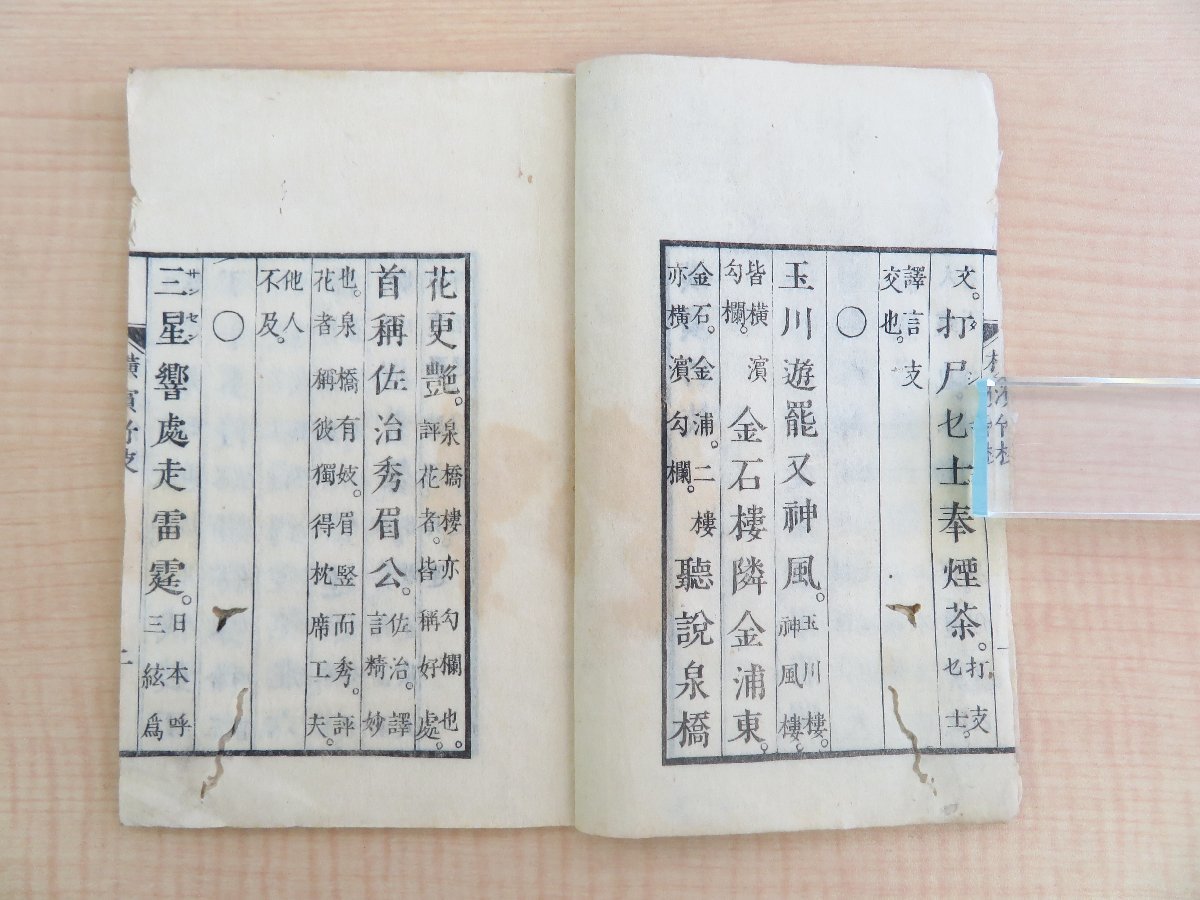 文。打尸乜士奉煙茶。打支乜士。
譯言支交也。
〇
玉川遊罷又神風。玉川樓。神風樓。
皆橫濱勾欄。金石樓隣金浦東。
金石。金浦。二樓亦橫濱勾欄。聽說泉橋
花更艷。泉橋樓亦勾欄也。評花者。皆稱好處。
首稱佐治秀眉公。佐治。譯言精妙
也。泉橋有妓。眉竪而秀。評花者稱彼獨得枕席工夫。
他人不及。
〇
三星響處走雷霆。日本呼三絃爲
サンセン
橫濱竹枝
二